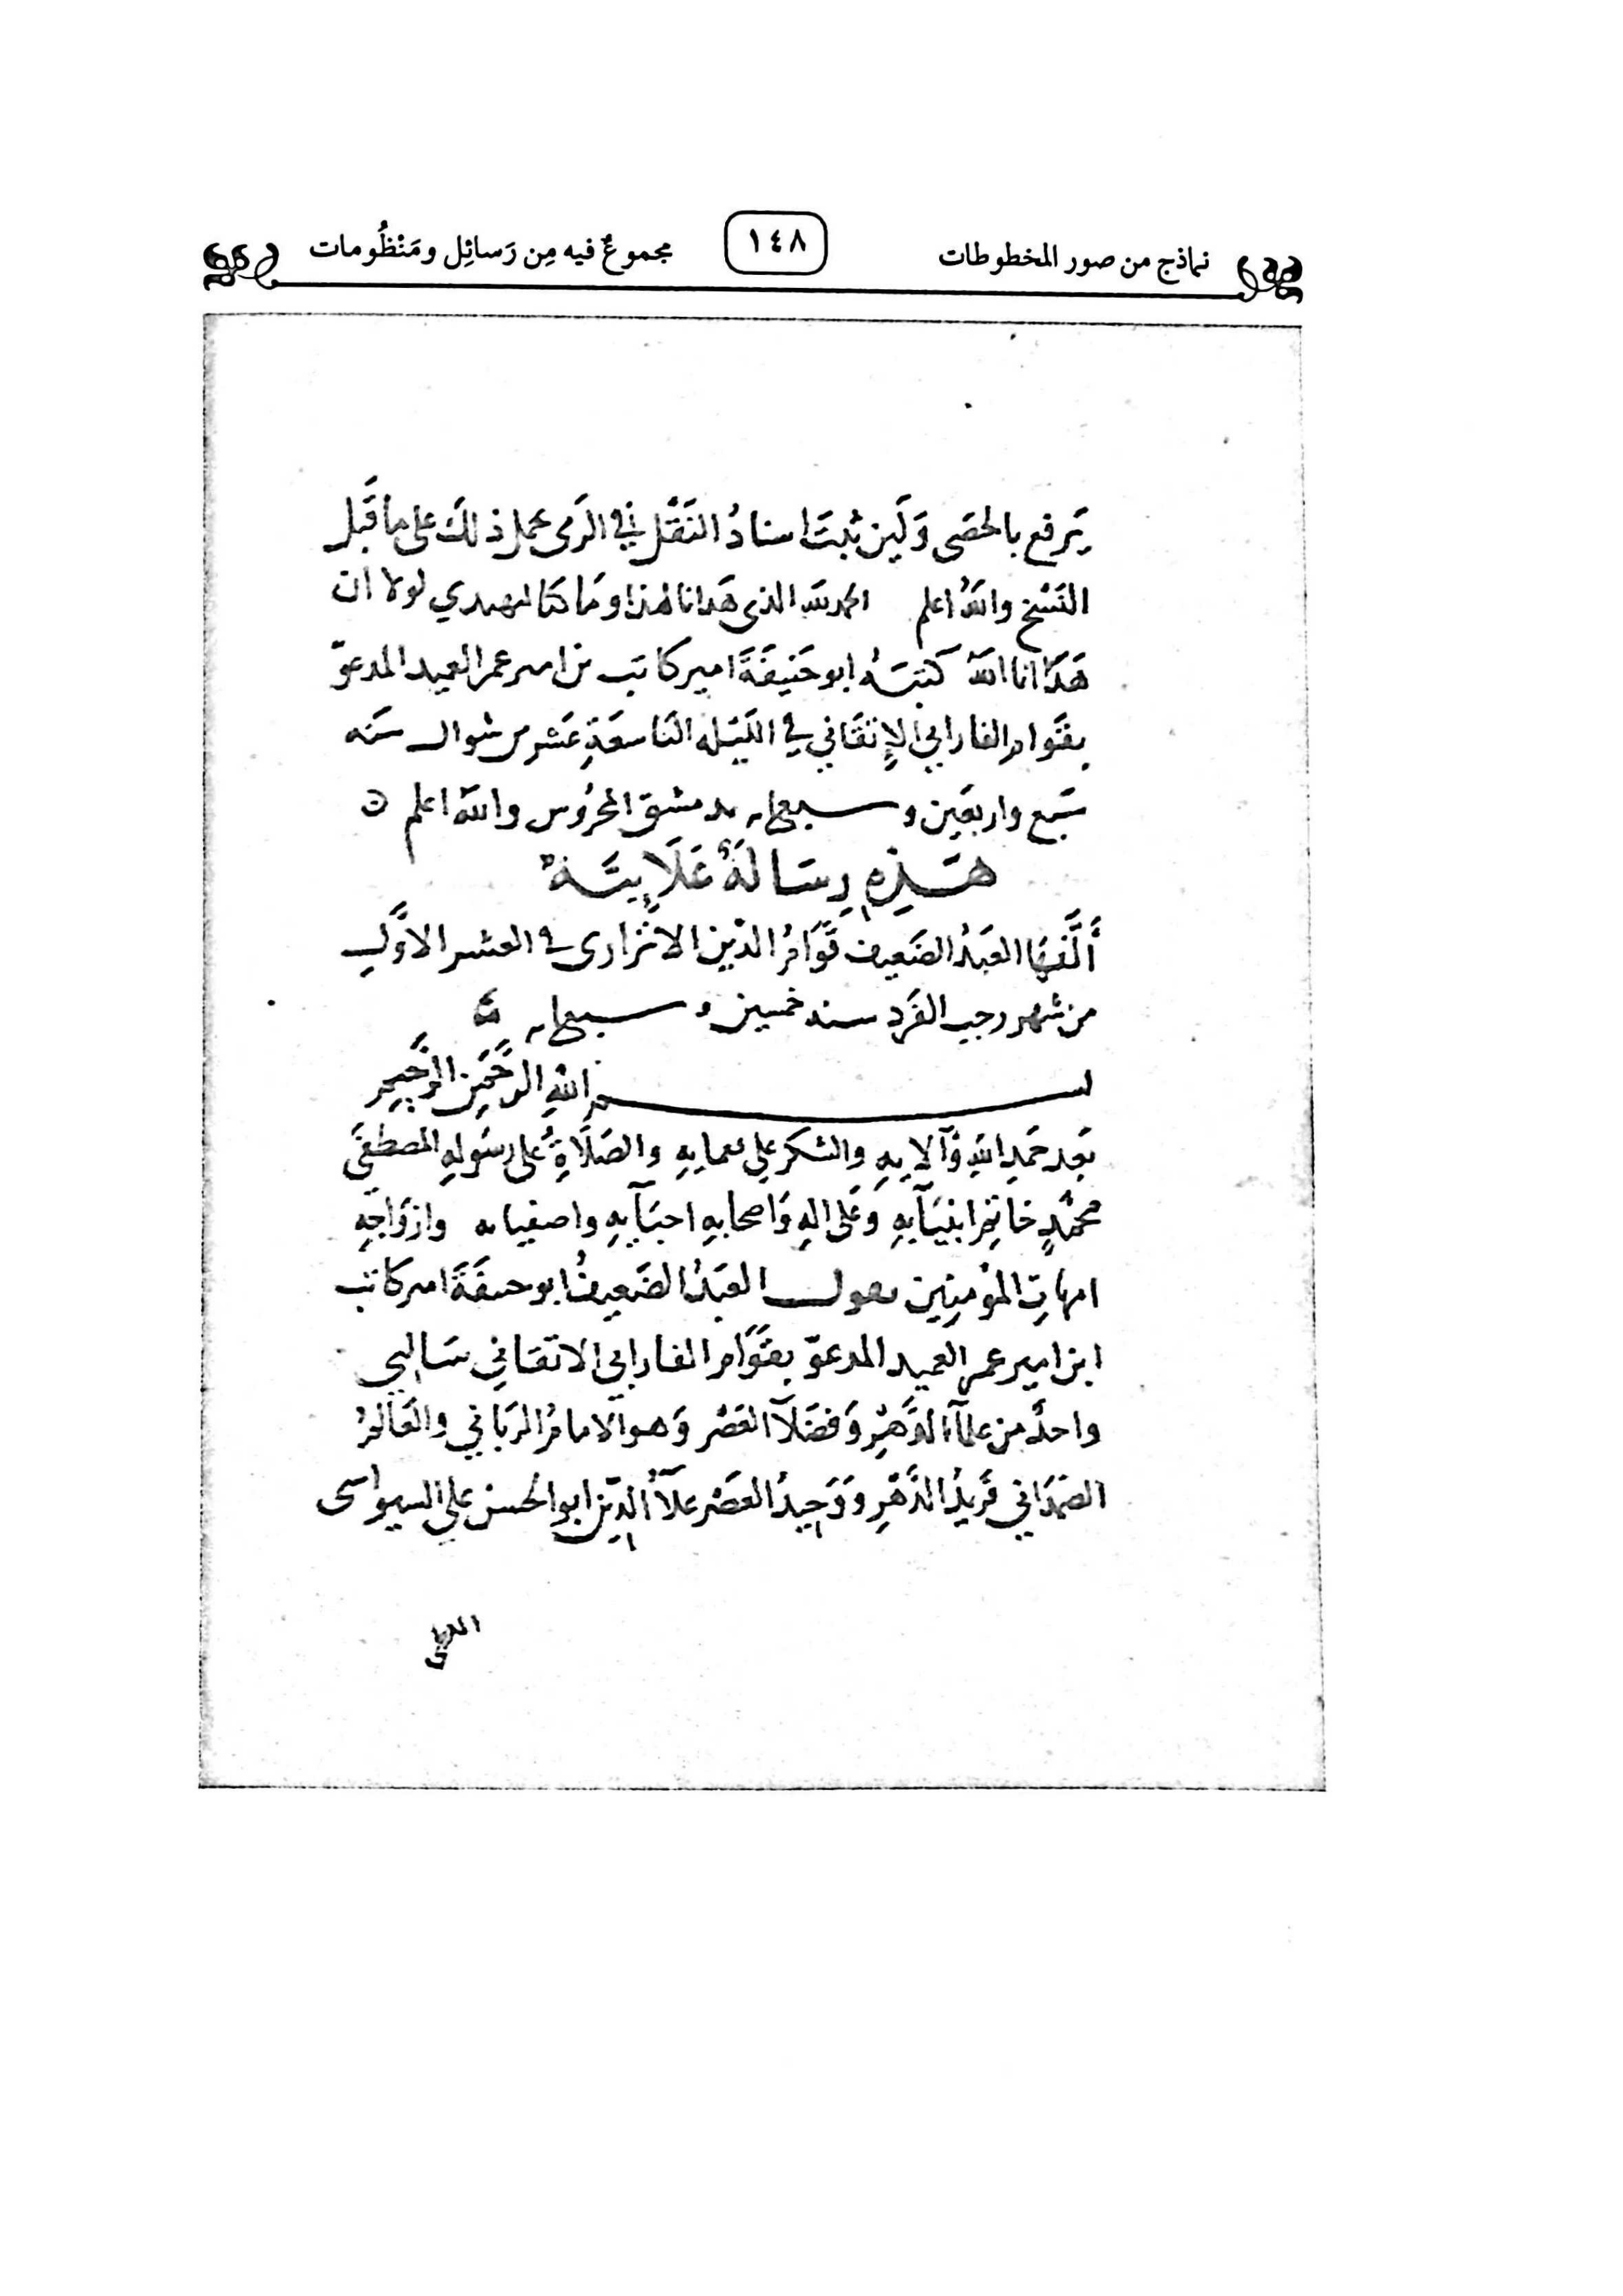 نماذج من صور المخطوطات ١٤٨ مجموعٌ فيه مِن رَسائِل ومَنْظُومات
يَرفع بالحصَى وَلَين ثبتَ اسنادُ النَقْل في الرَمى يحمل ذلكَ على ما قَبل
النَسْخ واللهُ اعلم الحمد لله الذى هَدانا لهذا ومَا كنا لنهتدي لولا ان
هَدَانا اللهُ كتبَهُ ابو حَنِيفَةَ امير كاتب بن امير عمر العميد المدعوّ
بقَوام الفارابي الإتقَاني في اللَيْله التَاسعَةِ عَشر من شوال سَنه
سَبْع واربعَين وسبعمايه بدمشق المحرُوس واللهُ اعلم ه
هَذِهِ رِسَالَةٌ عَلَايِيَّةٌ
أَلَّفَهَا العَبْدُ الضَعِيف قَوَّامُ الدّين الاتْرارى في العشر الاوَّلِ
من شهر رجب الفَرد سنه خمسين وسبعمايه
بسم اللهِ الرَّحْمَنِ الرَّحِيمِ
بَعد حَمدِ اللهِ وَآلايِهِ والشكر على نعمايهِ والصَلَاةُِ على رسَولهِ المصطفَى
محمَّدٍ خاتم انبيَآيهِ وَعَلى الهِ وَاصحابهِ احبَآيهِ واصفيايه وازوَاجِهِ
امهاتِ المؤمنِين يقول العَبْدُ الضَعيفُ ابو حنيفَةَ امير كاتب
ابن امير عمر العميد المدعوّ بقَوَّام الفارابي الاتقاني سَالني
واحدٌ من علمآء الدَّهْرِ وَفضَلآء العَصْر وَهو الامامُ الرَبَاني والعَالمُ
الصَمَدَاني فَرِيدُ الدَهْرِ وَوَحِيدُ العَصْر علآءُ الدّين ابو الحسن علي السيواسى